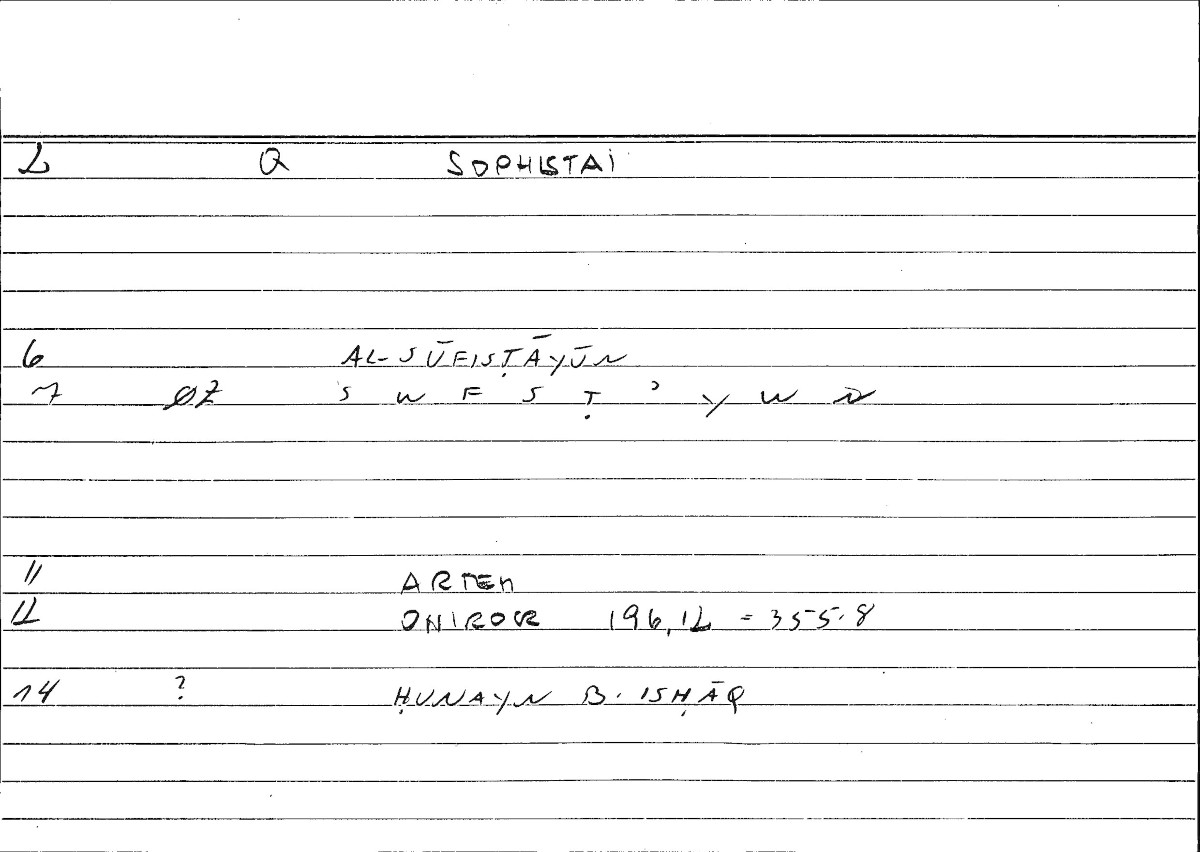 2 Q SOPHISTAI
6 AL-SŪFISṬĀYŪN
7 ØZ S W F S Ṭ ʾ Y W N
11 ARTEM
12 ONIROCR 196,12 = 355.8
14 ? ḤUNAYN B. ISḤĀQ